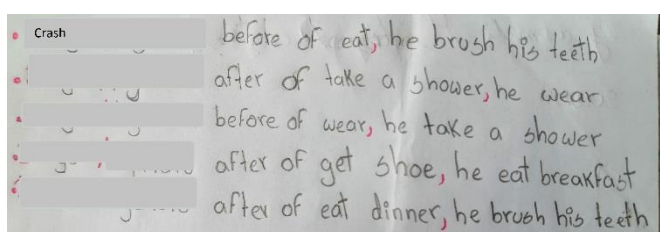 Crash before of eat, he brush his teeth
after of take a shower, he wear
before of wear, he take a shower
after of get shoe, he eat breakfast
after of eat dinner, he brush his teeth